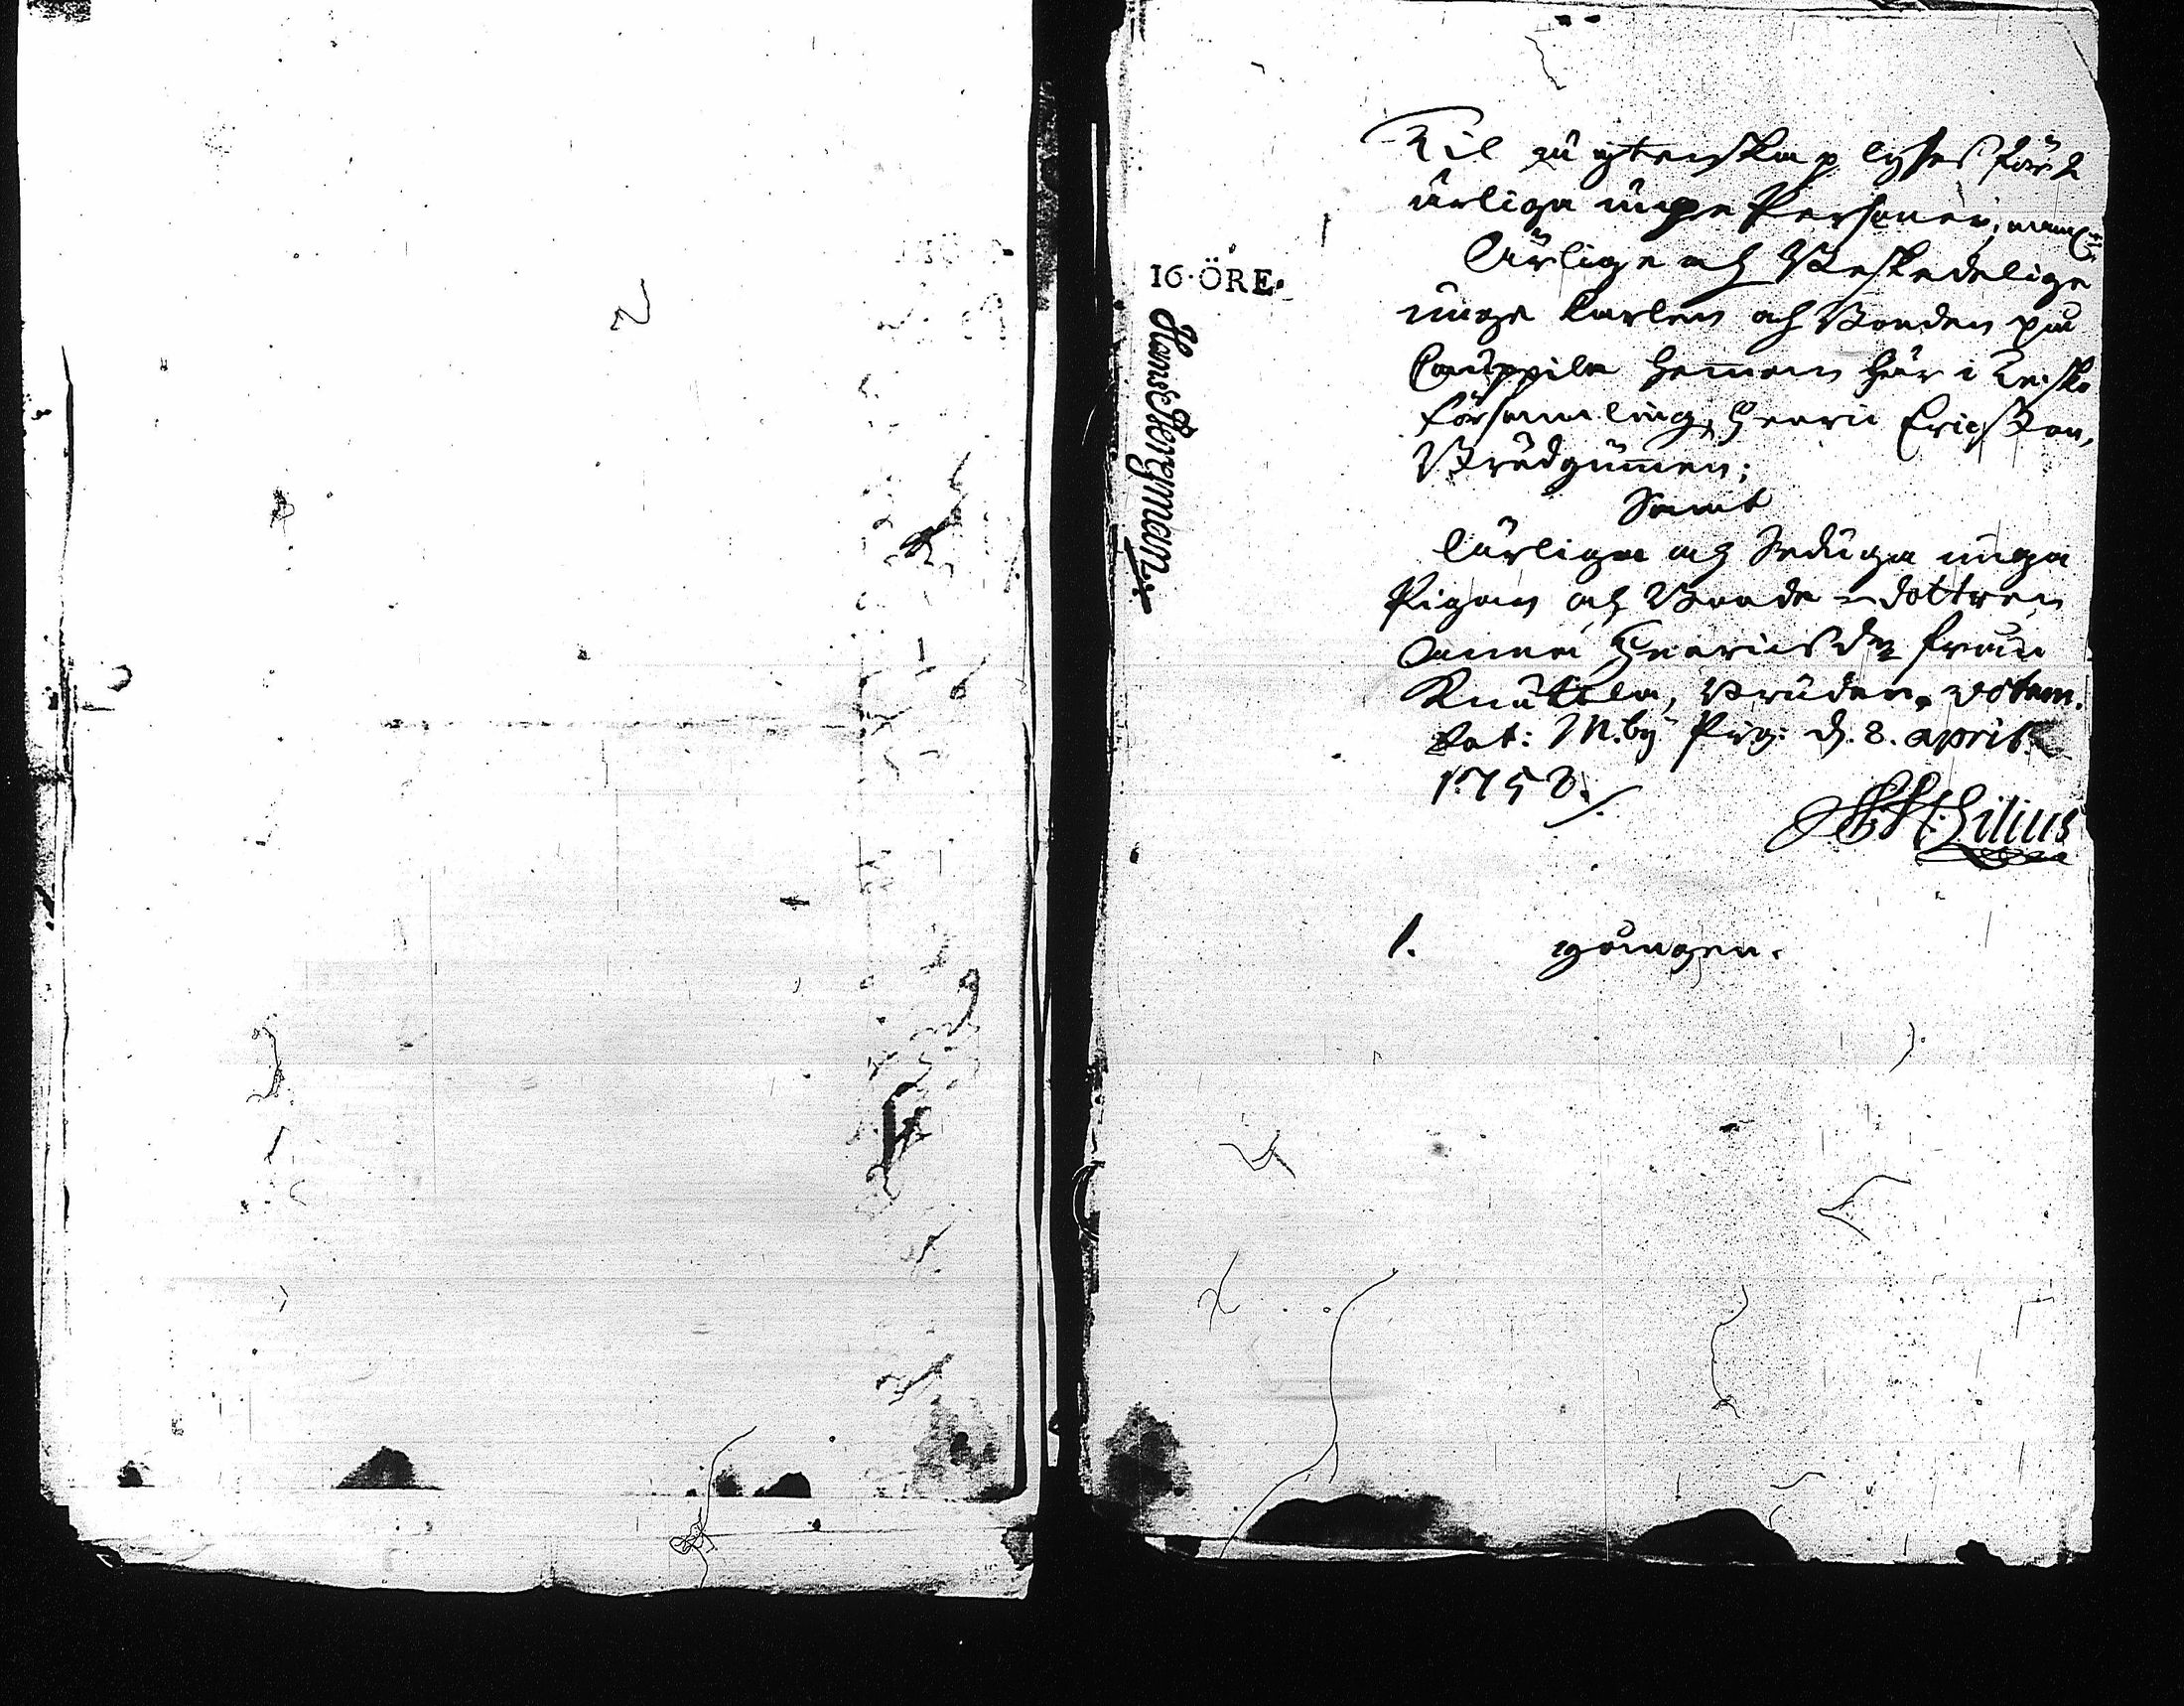 16·ÖRE.
Hans Bergman.
Til ägtenskap lyses för 2
ärliga unga Personer, näml:
Ärlige och Beskedelige
unge karlen och Bonden på
Caippila heman här i Teisko
försambling, Henric Ericsson,
Brudgummen;
Samt
Ärliga och Sediga unga
Pigan och Bonde-dottren
Anna Henricsdr från
Knuttila, Bruden.
Dat: M.by Prg: d. 8. april
1753.
Lilius
1. gången.